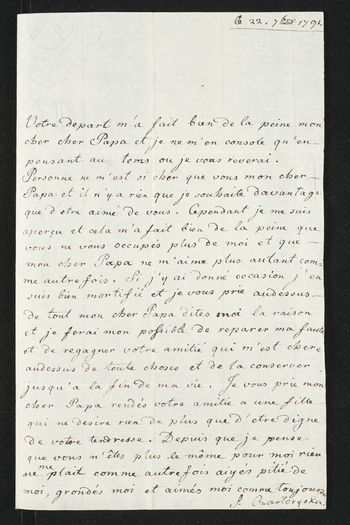 le 22. 7bre 1791.
Votre depart m'a fait bien de la peine mon
cher cher Papa et je ne m'en console qu'en
pensant au tems ou je vous reverai.
Personne ne m'est si cher que vous mon cher
Papa et il n'y a rien que je souhaite davantage
que d'etre aimé de vous. Cependant je me suis
aperçu et cela m'a fait bien de la peine que
vous ne vous occupés plus de moi et que
mon cher Papa ne m'aime plus autant com-
me autrefois. Si j'y ai donné occasion j'en
suis bien mortifiée et je vous prie audessus
de tout mon cher Papa dites moi la raison
et je ferai mon possible de reparer ma faute
et de regagner votre amitié qui m'est chere
audessus de toute choses et de la conserver
jusqu'a la fin de ma vie. Je vous prie mon
cher Papa rendés votre amitie a une fille
qui ne desire rien de plus que d'etre digne
de votre tendresse. Depuis que je pense
que vous n'êtes plus le même pour moi rien
ne me plait comme autrefois ayés pitié de
moi, grondés moi et aimés moi comme toujours
J. Czartoryska.